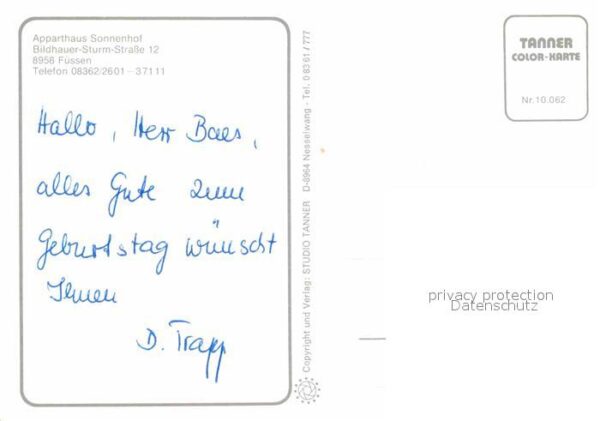 Apparthaus Sonnenhof
Bildhauer-Sturm-Straße 12
8958 Füssen
Telefon 08362/2601 – 37111
Hallo, Herr Baes,
alles Gute zum
Geburtstag wünscht
Ihnen
D. Trapp
Copyright und Verlag: STUDIO TANNER D-8964 Nesselwang - Tel. 0 83 61 / 777
TANNER
COLOR-KARTE
Nr. 10.062
privacy protection
Datenschutz